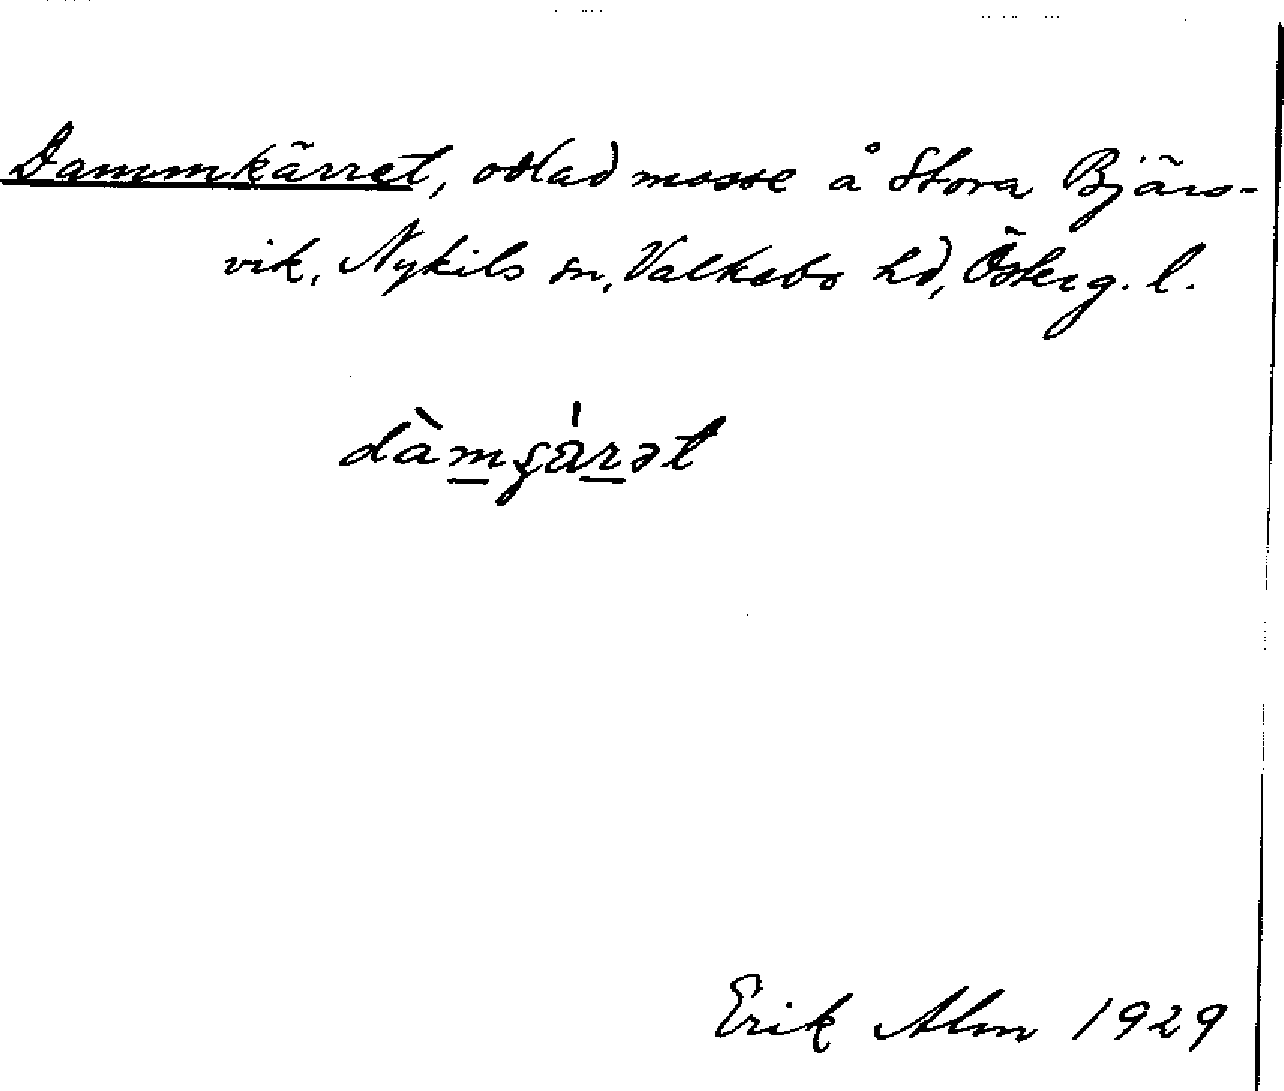 Dammkärret, odlad mosse å Stora Bjärs-
vik, Nykils sn, Valkebo hd, Österg. l.
dàmg̨ár̲ət
Erik Alm 1929